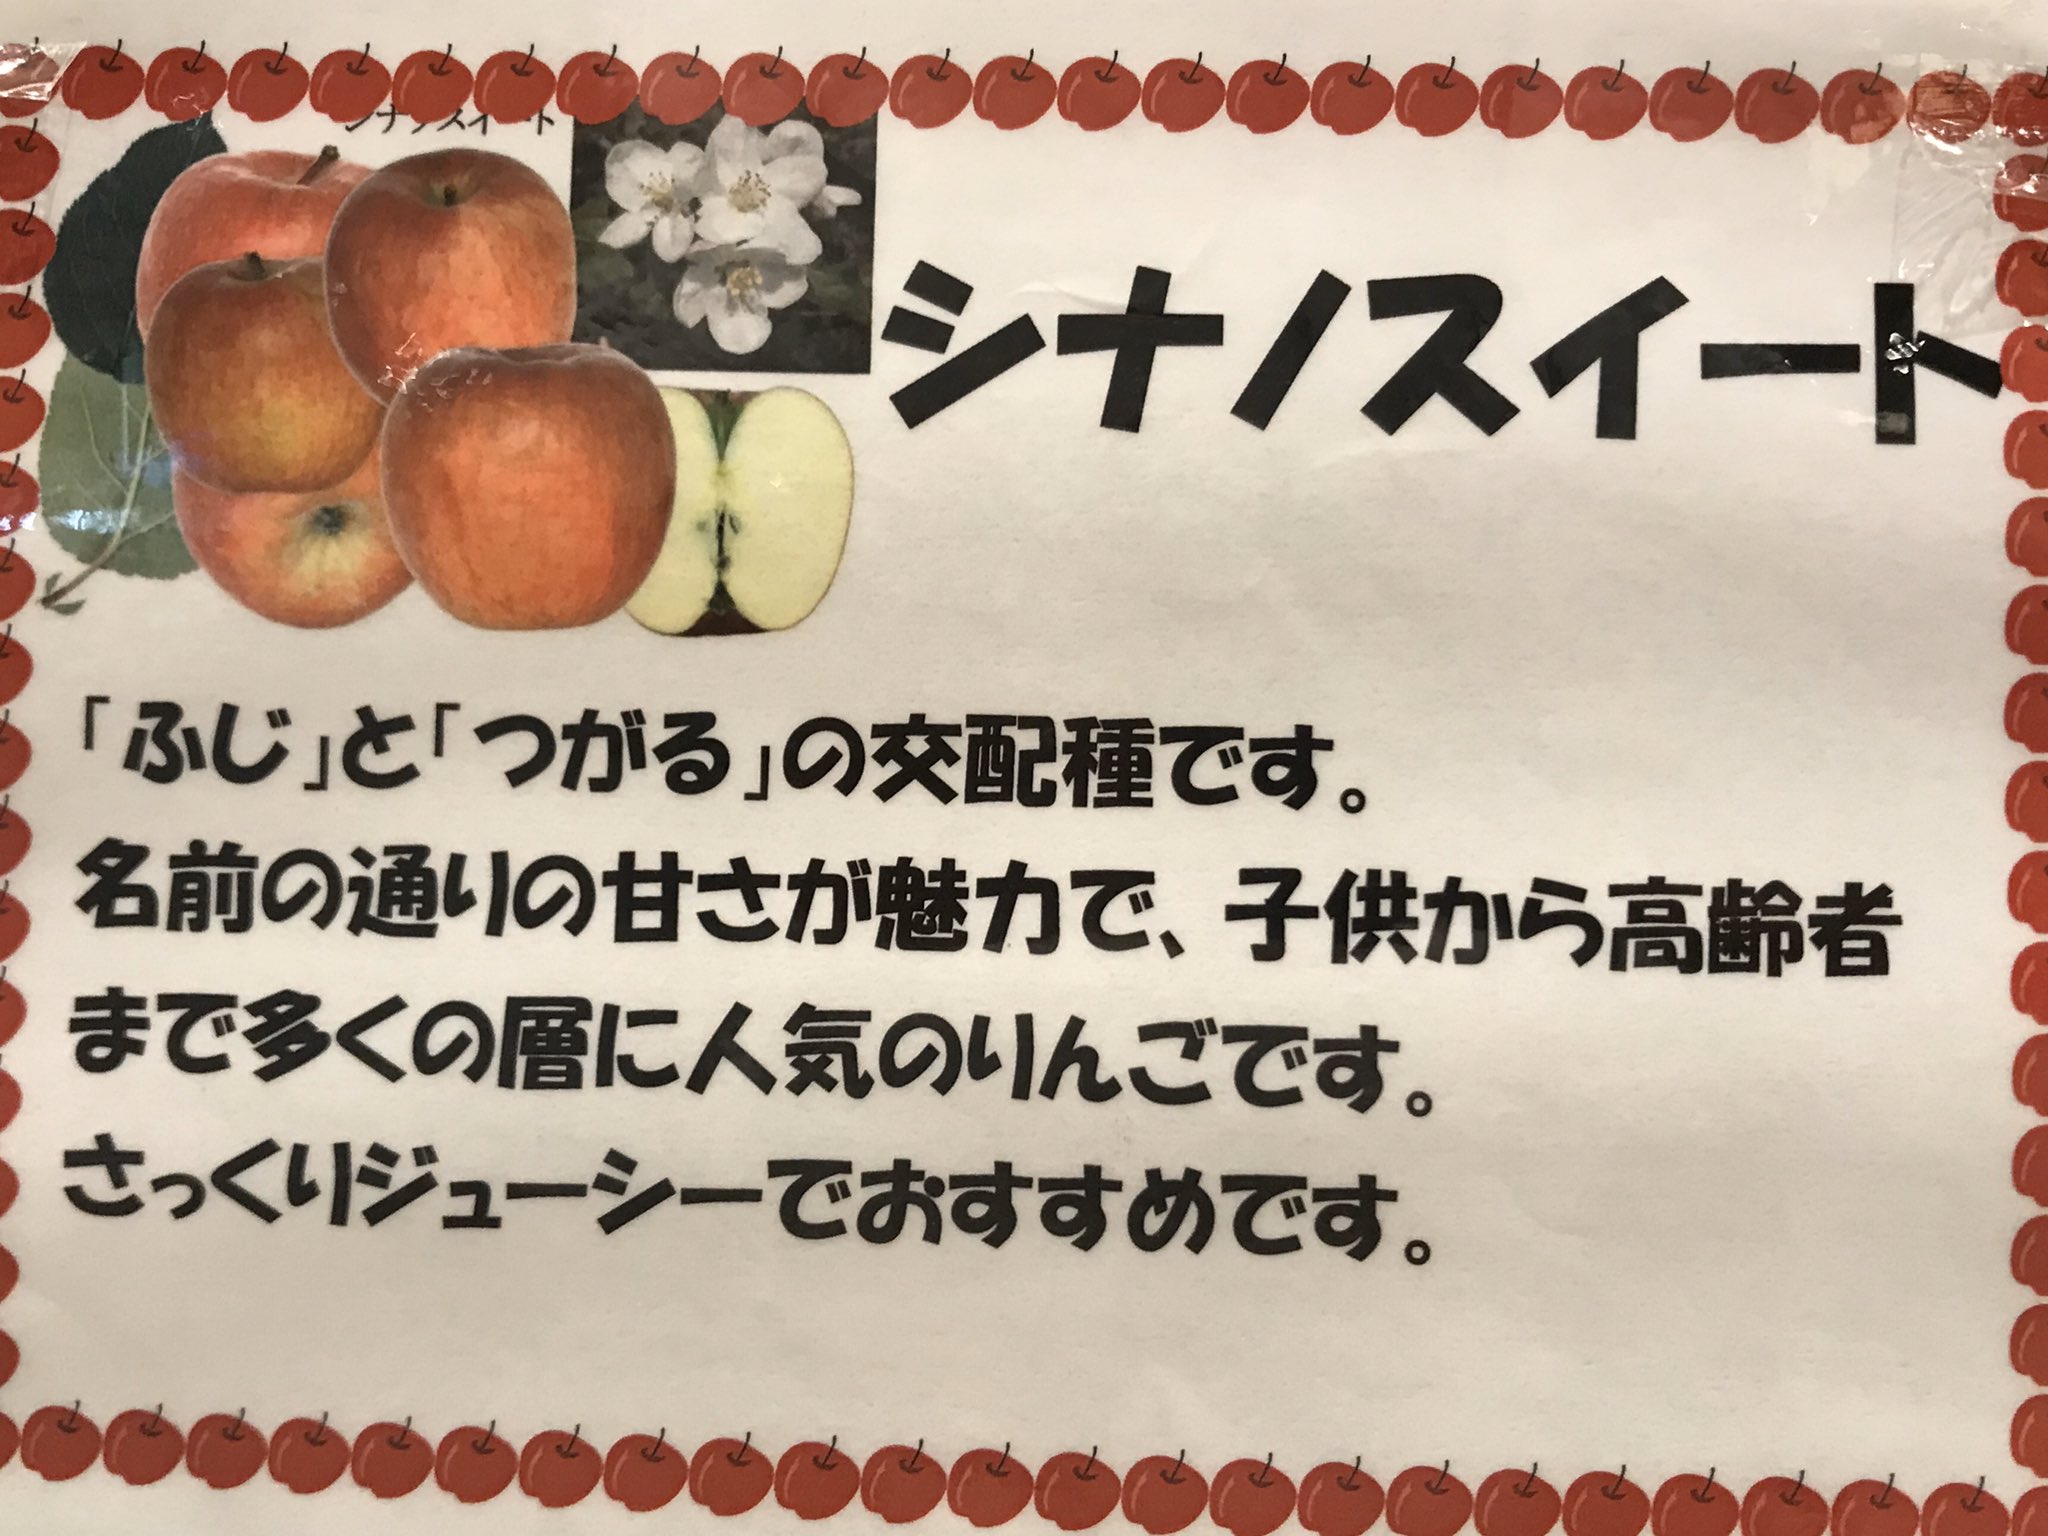 シナノスイート
シナノスイート
「ふじ」と「つがる」の交配種です。
名前の通りの甘さが魅力で、子供から高齢者
まで多くの層に人気のりんごです。
さっくりジューシーでおすすめです。